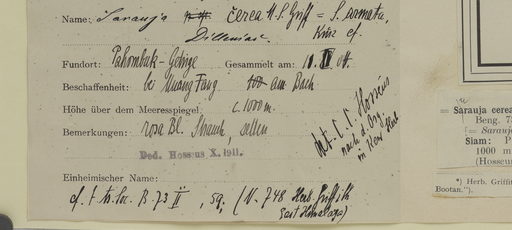 Name: Sarauja cerea W. S. Griff = S. armata,
Kurz cf.
Dilleniac
Fundort: Pahombuk-Gebirge Gesammelt am: 11. II 04.
Beschaffenheit: bei Muang Fang am Bach
Höhe über dem Meeresspiegel: c. 1000 m.
Bemerkungen: rosa Bl. Strauch, selten
det. C. C. Hosseus
nach d. Orig
in Kew Herb
Ded. Hosseus X. 1911.
Einheimischer Name:
cf. B. 73 II, 59; (N. 748 Herb. Griffith
East Himalaya)
= Sarauja cerea
Beng. 73
(= Sarauja
Siam: P
1000 m
(Hosseu
*) Herb. Griffit
Bootan.").